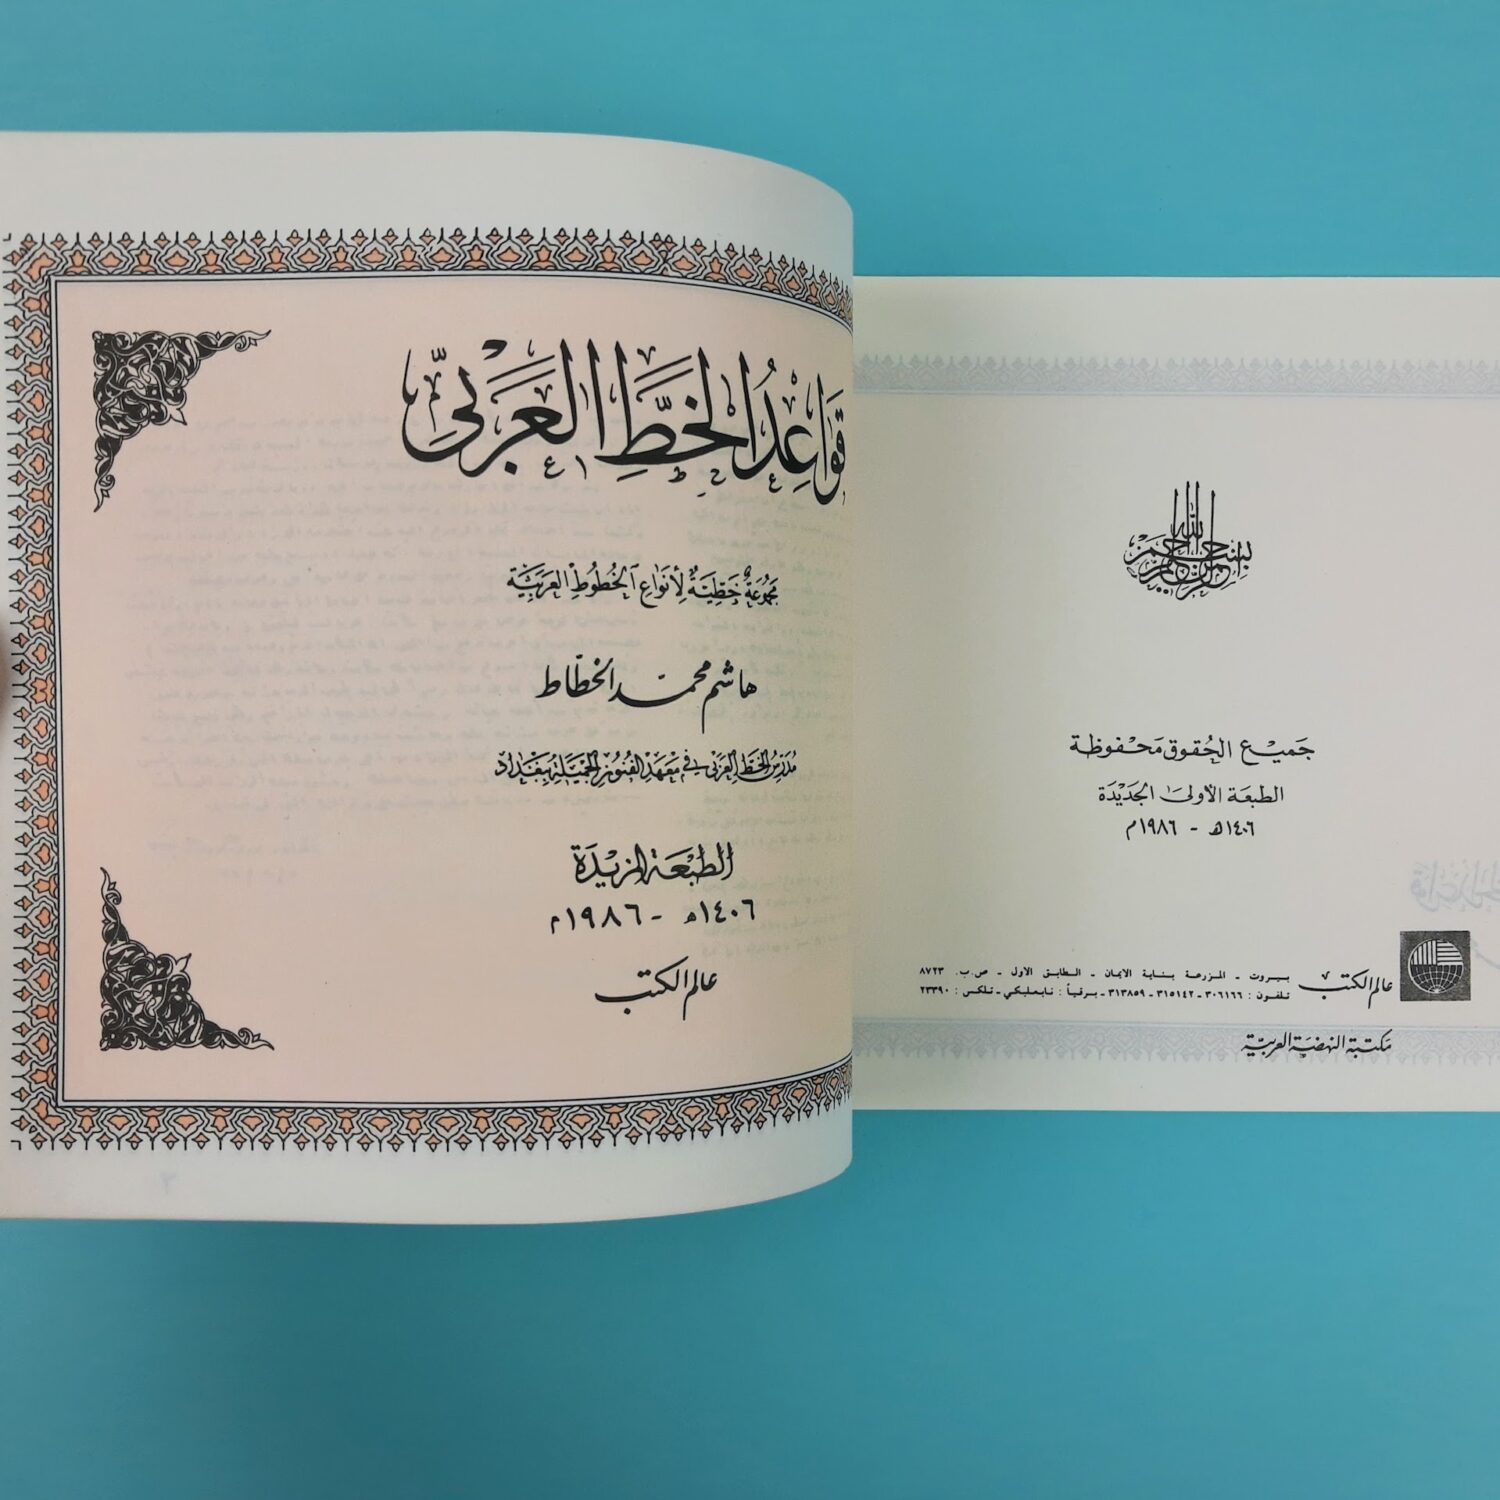 بسم الله الرحمن الرحيم
جميع الحقوق محفوظة
الطبعة الأولى الجديدة
١٤٠٦هـ - ١٩٨٦م
عالم الكتب
بيروت - المزرعة بناية الايمان - الطابق الاول - ص.ب. ٨٧٢٣
تلفون : ٣٠٦١٦٦ - ٣١٥١٤٢ - ٣١٣٨٥٩ - برقياً : نابعلبكي - تلكس : ٢٣٣٩٠
مكتبة النهضة العربية
قَوَاعِدُ الخَطِّ العَرَبيِّ
مَجْمُوعَةٌ خَطِّيَّةٌ لِأَنوَاعِ الخُطُوطِ العَرَبِيَّةِ
هاشم محمد الخطّاط
مُدَرِّس الخَطِّ العَرَبي في مَعْهَدِ الفُنُونِ الجَمِيلَة بِبَغْدَاد
الطَبْعَة المَزِيْدَة
١٤٠٦هـ - ١٩٨٦م
عالم الكتب